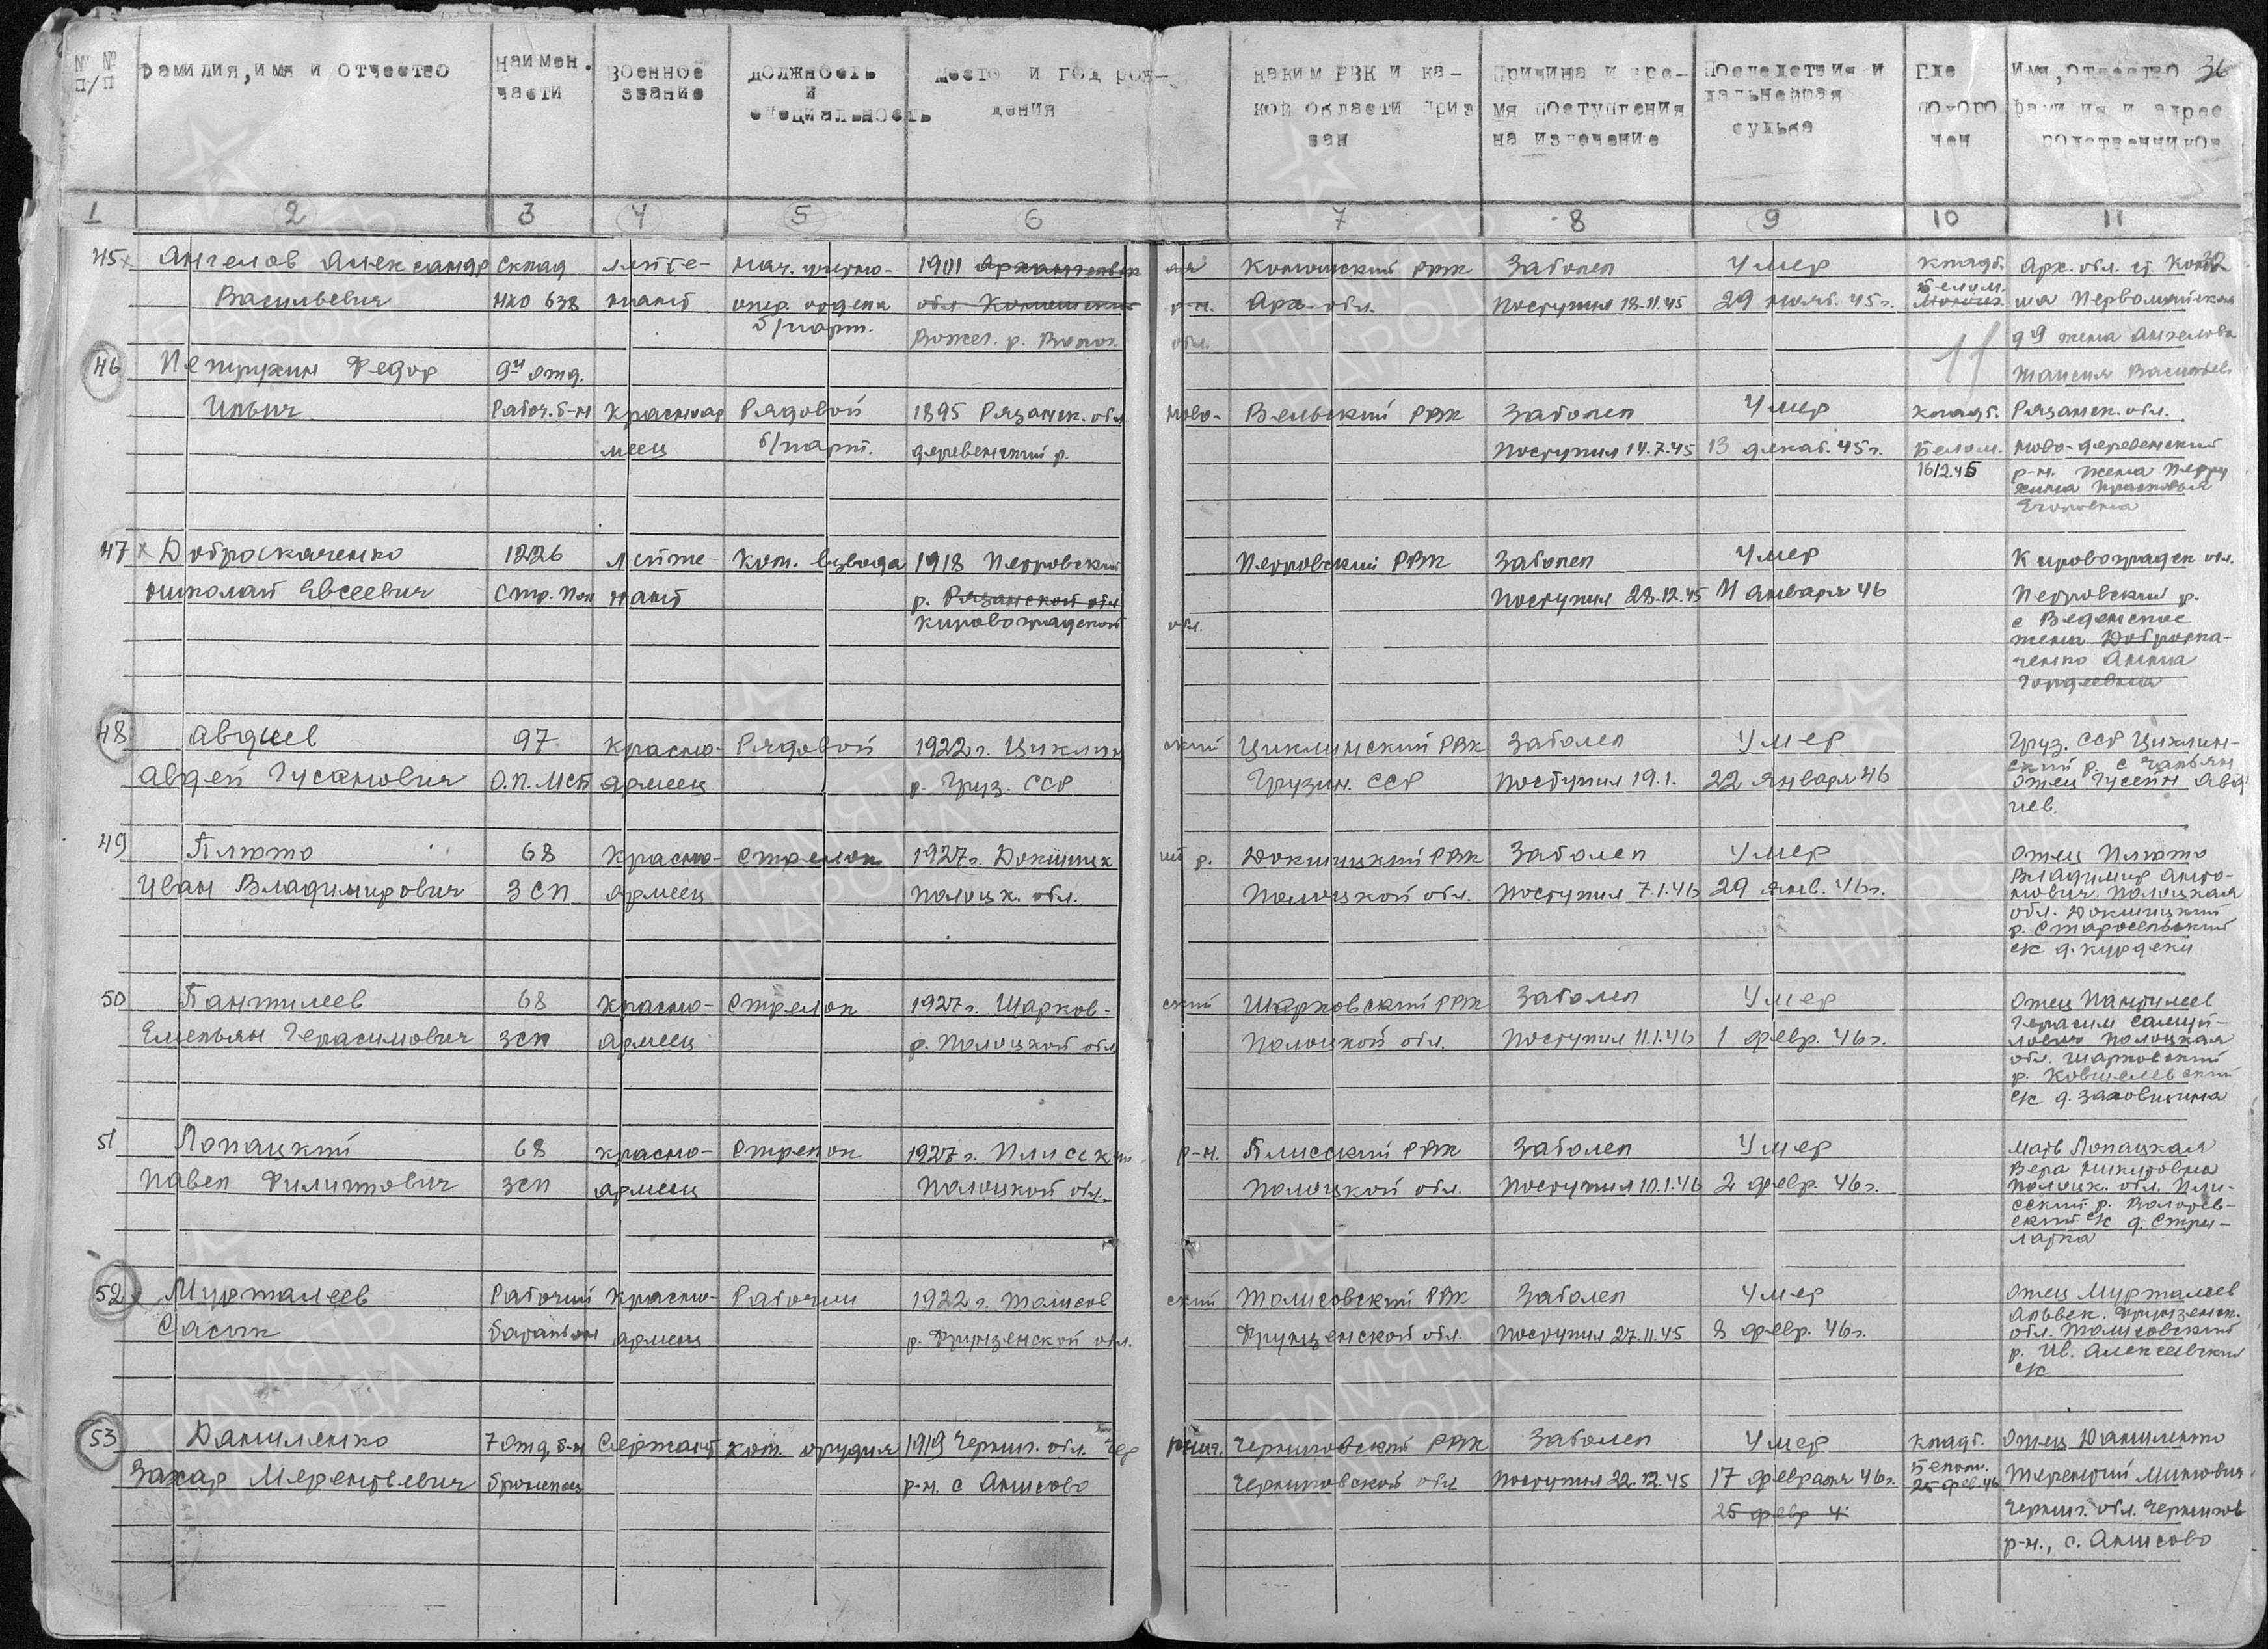 № № п/п
Фамилия, имя и отчество
Наимен. части
Военное звание
Должность и специальность
Место и год рождения
Каким РВК и какой области призван
Причина и время поступления на излечение
Последствия и дальнейшая судьба
Где похоронен
Имя, отчество фамилия и адрес родственников
36
1 2 3 4 5 6 7 8 9 10 11
45 Ангелов Александр Склад лейте- нач. учетно- 1901 Архангельск ая Коношский РВК Заболел Умер кладб. Арх. обл. ст Коно
Васильевич НКО 638 нант опер. отдела обл Коношский р-н. Арх. обл. Поступил 18.11.45 29 нояб. 45 г. Белом. ша Первомайская
б/парт. Вожег. р. Волог. обл. д 9 жена Ангелова
Таисия Васильев
46 Петрухин Федор 9й отд.
Ильич Рабоч. б-н Красноар Рядовой 1895 Рязанск. обл Ново- Вельский РВК Заболел Умер кладб. Рязанск. обл.
меец б/парт. деревенский р. Поступил 14.7.45 13 декаб. 45 г. Белом. Ново-деревенский
16/2.45 р-н. жена Петру
хина Прасковья
Егоровна
47 Доброскаченко 1226 Лейте- Ком. взвода 1918 Петровский Петровский РВК Заболел Умер Кировоградск обл.
Николай Евсеевич Стр. Пол нант р. Рязанской обл Поступил 28.12.45 11 января 46 Петровский р.
Кировоградской обл. с Веденское
жена Доброска-
ченко Анна
Гордеевна
48 Авдиев 97 Красно- Рядовой 1922 г. Циклин ский Циклинский РВК Заболел Умер Груз. ССР Циклин-
Авдей Гусанович О.П. МСБ армеец р. Груз. ССР Грузин. ССР Поступил 19.1. 22 января 46 ский р. с
Отец Гусейн Авд
иев.
49 Плюто 68 Красно- Стрелок 1927 г. Докшицк ий р. Докшицкий РВК Заболел Умер Отец Плюто
Иван Владимирович ЗСП армеец Полоцк. обл. Полоцкой обл. Поступил 7.1.46 29 янв. 46 г. Владимир Анто-
нович. Полоцкая
обл. Докшицкий
р. Старосельский
с/с д. Курдеки
50 Пантилеев 68 Красно- Стрелок 1927 г. Шарков- ский Шарковский РВК Заболел Умер Отец Пантилеев
Емельян Герасимович ЗСП армеец р. Полоцкой обл Полоцкой обл. Поступил 11.1.46 1 февр. 46 г. Герасим Самуй-
лович Полоцкая
обл. Шарковский
р. Ковшелевский
с/с д.
51 Лопацкий 68 Красно- Стрелок 1927 г. Плисский р-н. Плисский РВК Заболел Умер Мать Лопацкая
Павел Филиппович ЗСП армеец Полоцкой обл. Полоцкой обл. Поступил 10.1.46 2 февр. 46 г. Вера Никитовна
Полоцк. обл. Пли-
сский р.
с/с д.
52 Мурталеев Рабочий Красно- Рабочий 1922 г. Талисов ский Талисовский РВК Заболел Умер Отец Мурталеев
Сасык батальон армеец р. Фрунзенской обл. Фрунзенской обл. Поступил 27.11.45 8 февр. 46 г. Альбек. Фрунзенск.
обл. Талисовский
р. Ив. Алексеевский
с/с
53 Даниленко 7 отд. б-н Сержант ком. орудия 1919 Черниг. обл. Чер ниг. Черниговский РВК Заболел Умер кладб. Отец Даниленко
Захар Терентьевич бронепоезд р-н. с Анисово Черниговской обл Поступил 22.12.45 17 февраля 46 г. Белом. 25 фев. 46 Терентий Минович
25 февр 4 Черниг. обл. Чернигов
р-н., с. Анисово